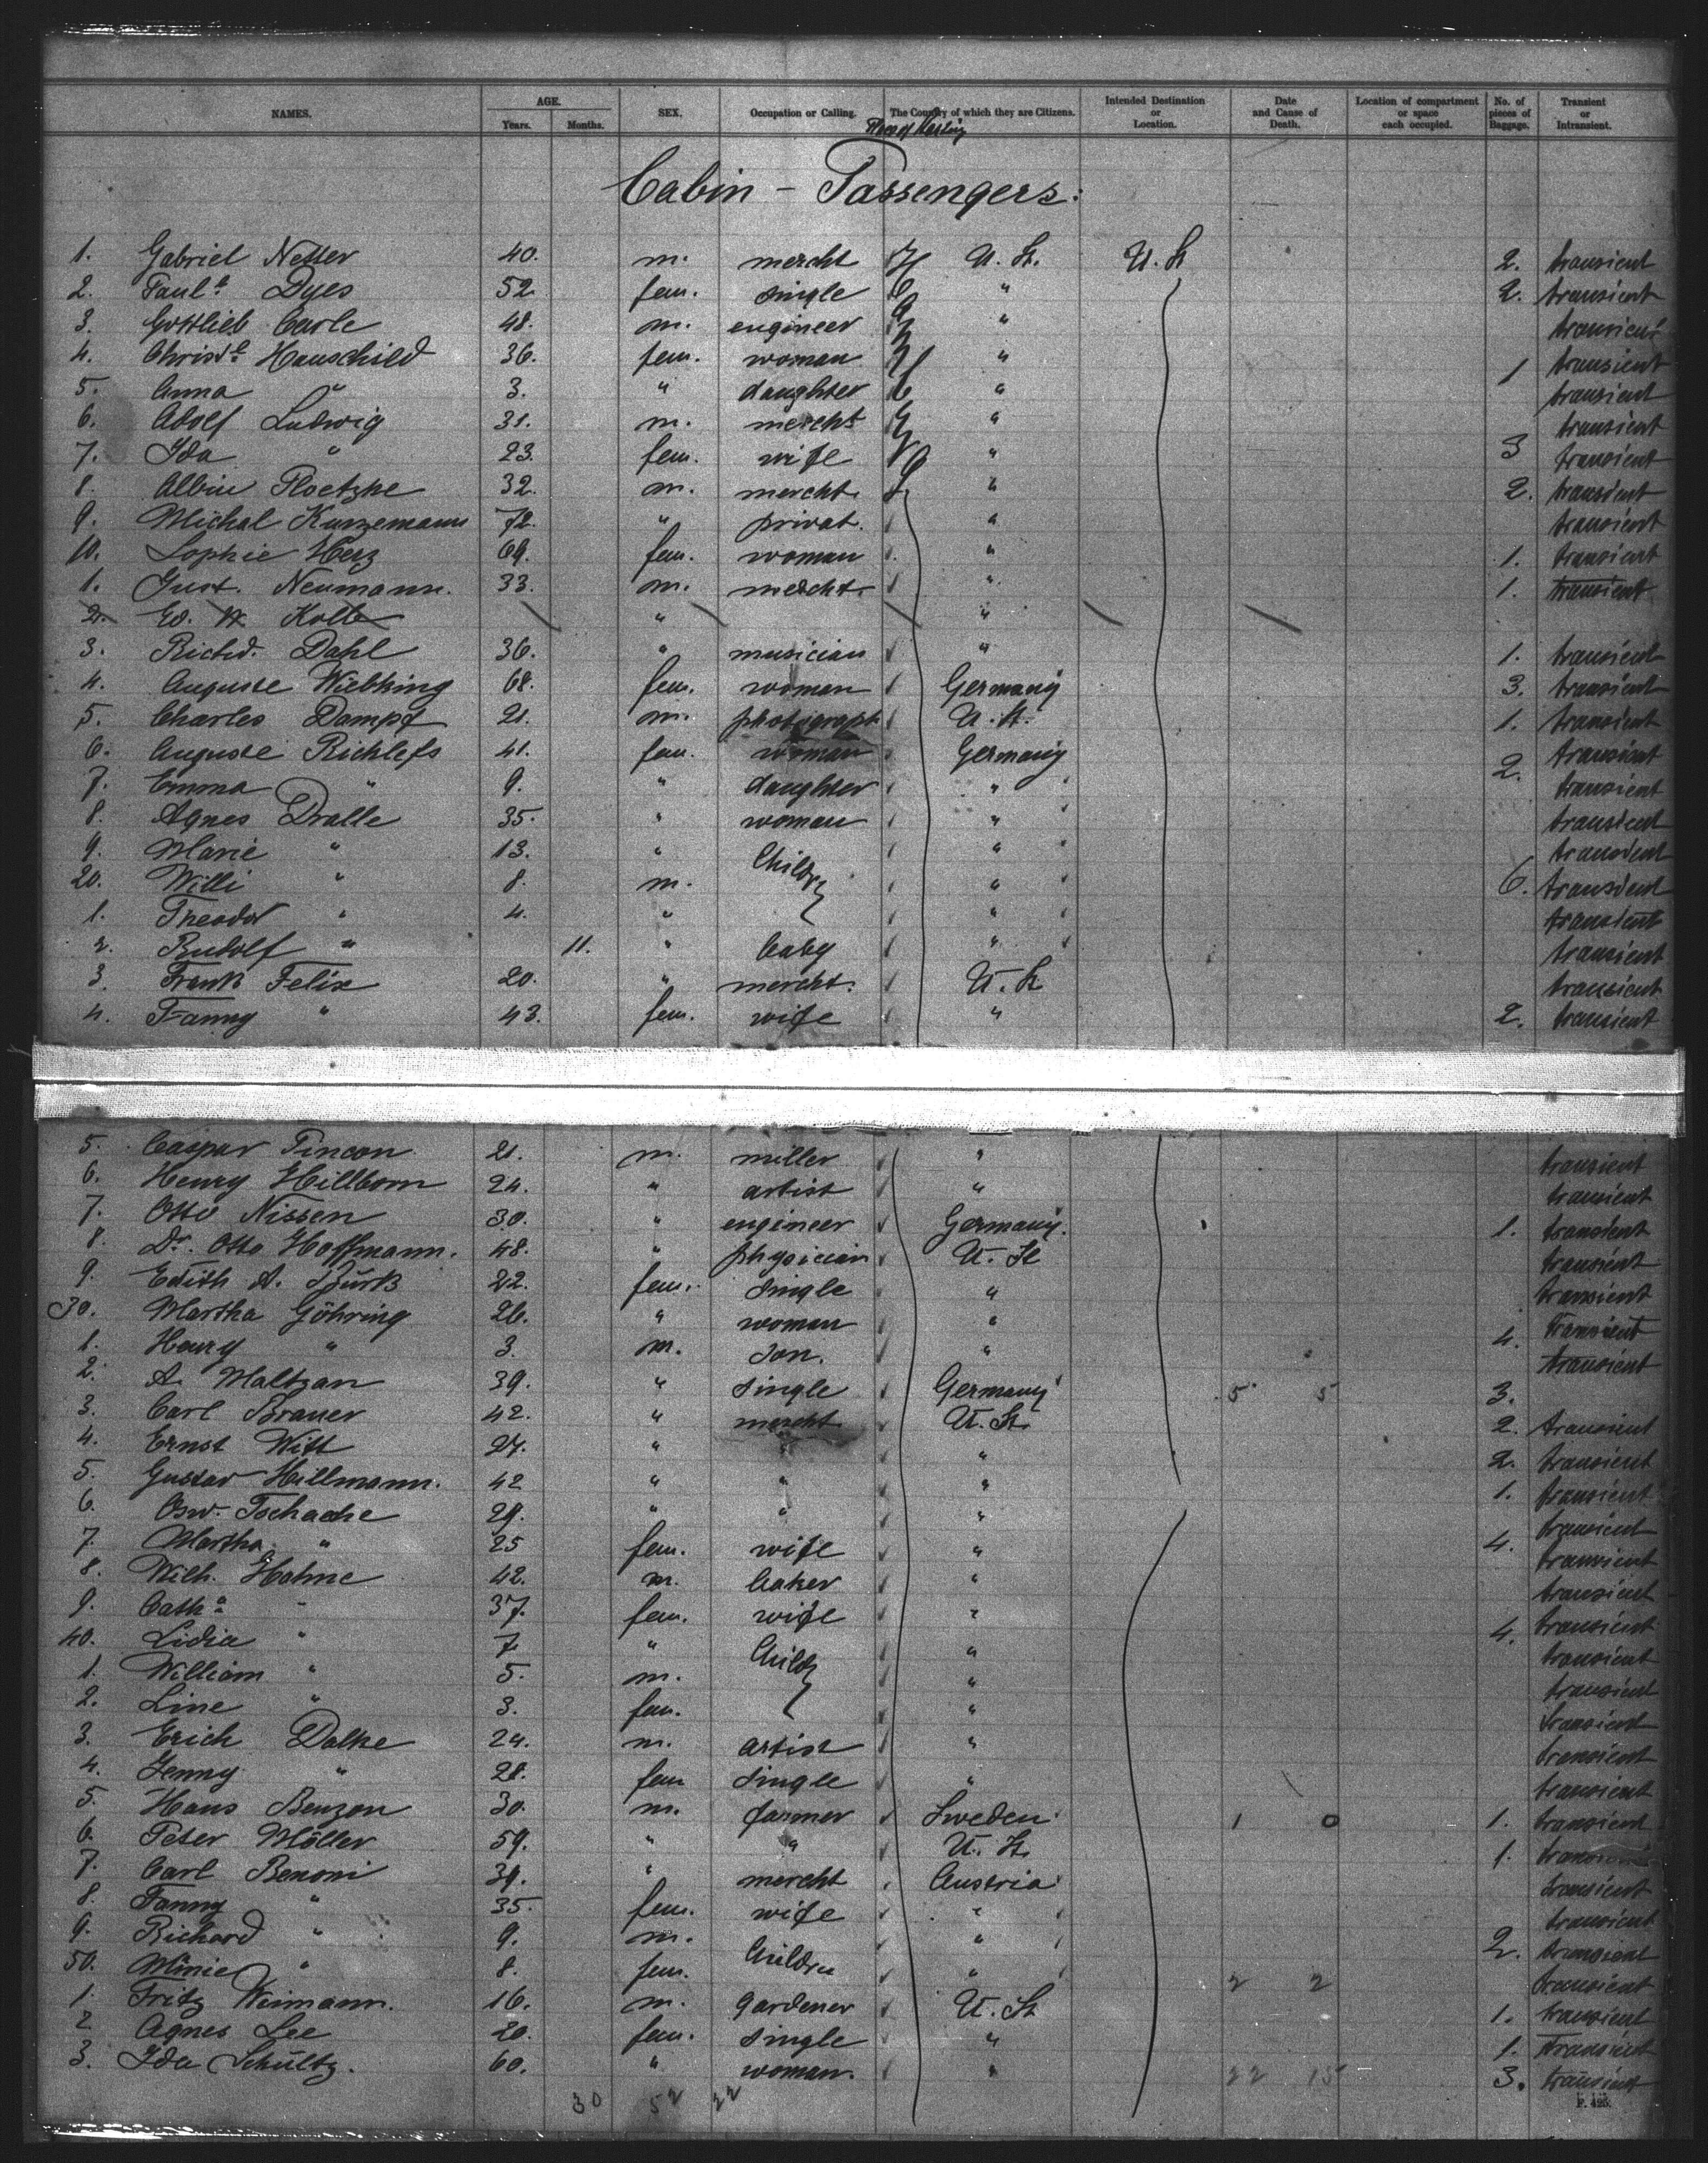 NAMES. AGE. Years. Months. SEX. Occupation or Calling. The Country of which they are Citizens. Intended Destination or Location. Date and Cause of Death. Location of compartment or space each occupied. No. of pieces of Baggage. Transient or Intransient.
Cabin - Passengers:
1. Gabriel Netter 40. m. mercht U. St. U. St 2. transient
2. Paul.a Dyes 52 fem. single " 2. transient
3. Gottlieb Carle 48. m. engineer " transient
4. Christ.e Hauschild 36. fem. woman " 1 transient
5. Anna " 3. " daughter " transient
6. Adolf Ludwig 31. m. mercht " transient
7. Ida " 23. fem. wife " 3 transient
8. Albin Ploetzke 32. m. mercht. " 2. transient
9. Michal Kunzemann 72. " privat. " transient
10. Sophie Herz 69. fem. woman " 1. transient
1. Gust. Neumann. 33. m. mercht. " 1. transient
2. Ed. W. Kolle " "
3. Richd. Dahl 36. " musician " 1. transient
4. Auguste Wiebking 68. fem. woman Germany 3. transient
5. Charles Dampf 21. m. photograph U. St. 1. transient
6. Auguste Richlefs 41. fem. woman Germany 2. transient
7. Emma " 9. " daughter " transient
8. Agnes Dralle 35. " woman " transient
9. Marie " 13. " Childr " transient
20. Willi " 8. m. " 6. transient
1. Theodor " 4. " " transient
2. Rudolf " 11. " baby " transient
3. Frank Felix 20. " mercht. U. St transient
4. Fanny " 43. fem. wife " 2. transient
5. Caspar Pincon 21. m. miller " transient
6. Henry Hillbom 24. " artist " transient
7. Otto Nissen 30. " engineer Germany. 1. transient
8. Dr. Otto Hoffmann. 48. " physician U. St transient
9. Edith A. 22. fem. single " transient
30. Martha Göhring 26. " woman " 4. transient
1. Henry " 3. m. son. " transient
2. A. Maltzan 39. " single Germany 5 5 3.
3. Carl Brauer 42. " mercht U. St. 2. transient
4. Ernst Witt 27. " " " 2. transient
5. Gustav Hillmann. 42 " " " 1. transient
6. Osw. Tschache 29. " " " transient
7. Martha " 25 fem. wife " 4. transient
8. Wilh. Hohne 42. m. baker " transient
9. Cath.a " 37. fem. wife " transient
40. Lidia " 7 " Childr " 4. transient
1. William " 5. m. " transient
2. Line " 3. fem. " transient
3. Erich Dalke 24. m. artist " transient
4. Jenny " 28. fem single " transient
5. Hans Benzon 30. m. farmer Sweden 1 0 1. transient
6. Peter Möller 59. " " U. St. 1. transient
7. Carl Benoni 39. " mercht Austria transient
8. Fanny " 35. fem. wife " transient
9. Richard " 9. m. Children " 2. transient
50. Minie " 8. fem. " 2 2 transient
1. Fritz Weimann. 16. m. gardener U. St 1. transient
2 Agnes Lee 20. fem. single " 1. transient
3. Ida Schültz. 60. " woman. " 22 15 3. transient
30 52 22
F. 425.